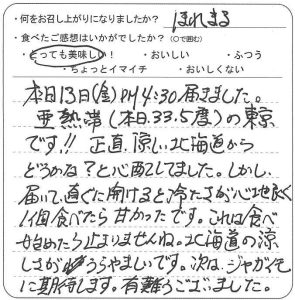 ・何をお召し上がりになりましたか？ ほれまる
・食べたご感想はいかがでしたか？（○で囲む）
・とっても美味しい！ ・おいしい ・ふつう
・ちょっとイマイチ ・おいしくない
本日13日(金)PM4:30届きました。
亜熱帯(本日33.5度)の東京
です!! 正直、涼しい北海道から
どうかな？と心配してました。しかし、
届いて、直ぐに開けると冷たさが心地良く
1個食べたら甘かったです。これは食べ
始めたら止まりませんね。北海道の涼
しさがうらやましいです。次は、ジャガイモ
に期待します。有難うございました。